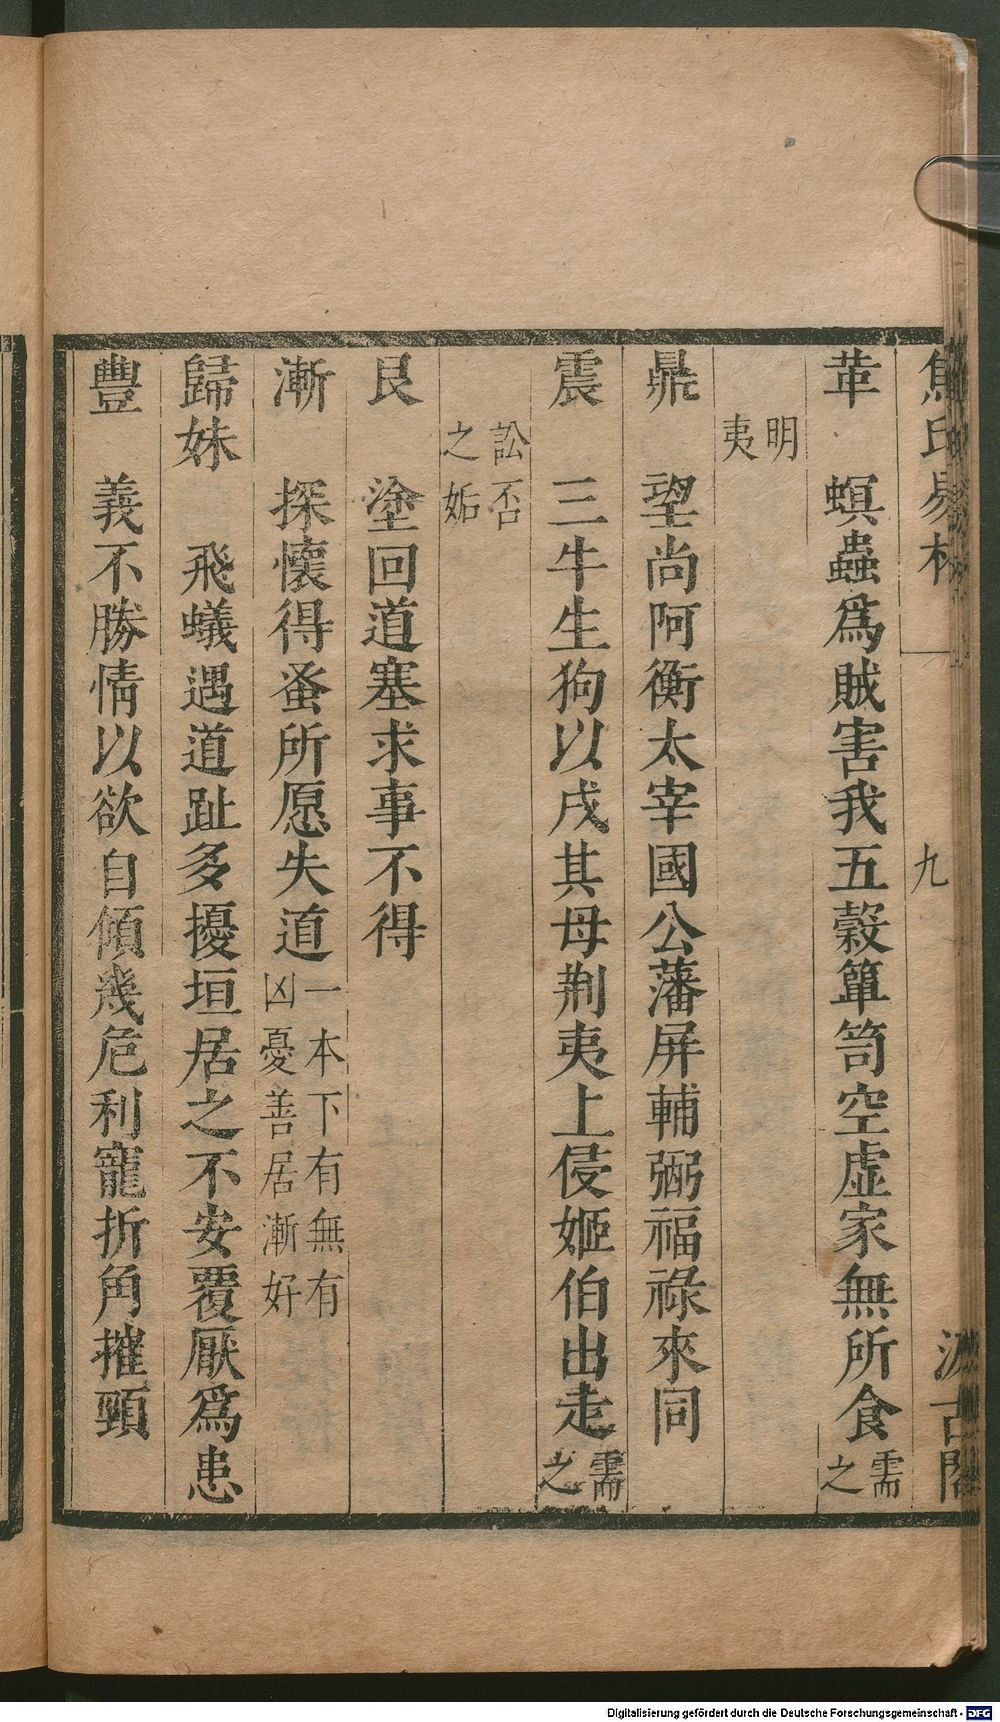 焦氏易林 九 汲古閣
革 螟蟲爲賊害我五穀簞笥空虛家無所食 需之
明夷
鼎 望尚阿衡太宰國公藩屏輔弼福祿來同
震 三牛生狗以戌其母荆夷上侵姬伯出走 需之
訟否之姤
艮 塗回道塞求事不得
漸 探懷得蚤所愿失道 一本下有無有凶憂善居漸好
歸妹 飛蟻遇道趾多擾垣居之不安覆厭爲患
豐 義不勝情以欲自傾幾危利寵折角摧頸
Digitalisierung gefördert durch die Deutsche Forschungsgemeinschaft - DFG